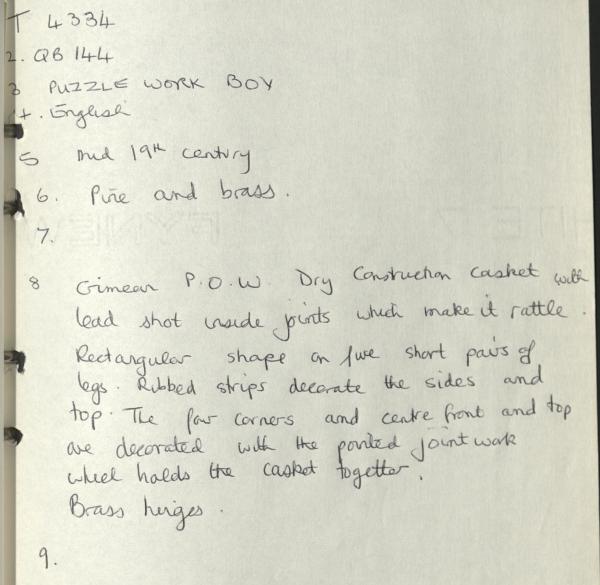 T 4334
2. QB 144
3 PUZZLE WORK BOX
4. English
5 Mid 19th century
6. Pine and brass.
7.
8 Crimean P.O.W. Dry Construction casket with
lead shot inside joints which make it rattle.
Rectangular shape on five short pairs of
legs. Ribbed strips decorate the sides and
top. The four corners and centre front and top
are decorated with the pointed joint work
which holds the casket together.
Brass hinges.
9.